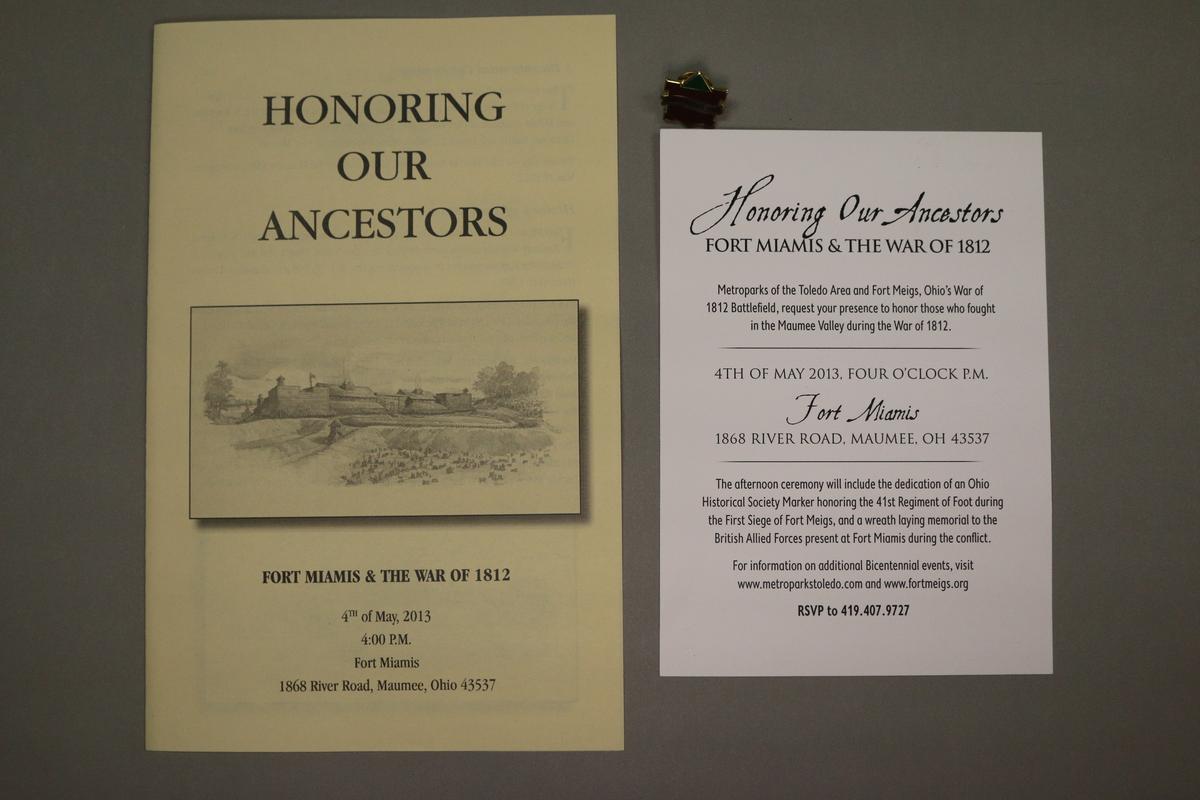 HONORING
OUR
ANCESTORS
FORT MIAMIS & THE WAR OF 1812
4TH of May, 2013
4:00 P.M.
Fort Miamis
1868 River Road, Maumee, Ohio 43537
Honoring Our Ancestors
FORT MIAMIS & THE WAR OF 1812
Metroparks of the Toledo Area and Fort Meigs, Ohio's War of
1812 Battlefield, request your presence to honor those who fought
in the Maumee Valley during the War of 1812.
4TH OF MAY 2013, FOUR O'CLOCK P.M.
Fort Miamis
1868 RIVER ROAD, MAUMEE, OH 43537
The afternoon ceremony will include the dedication of an Ohio
Historical Society Marker honoring the 41st Regiment of Foot during
the First Siege of Fort Meigs, and a wreath laying memorial to the
British Allied Forces present at Fort Miamis during the conflict.
For information on additional Bicentennial events, visit
www.metroparkstoledo.com and www.fortmeigs.org
RSVP to 419.407.9727